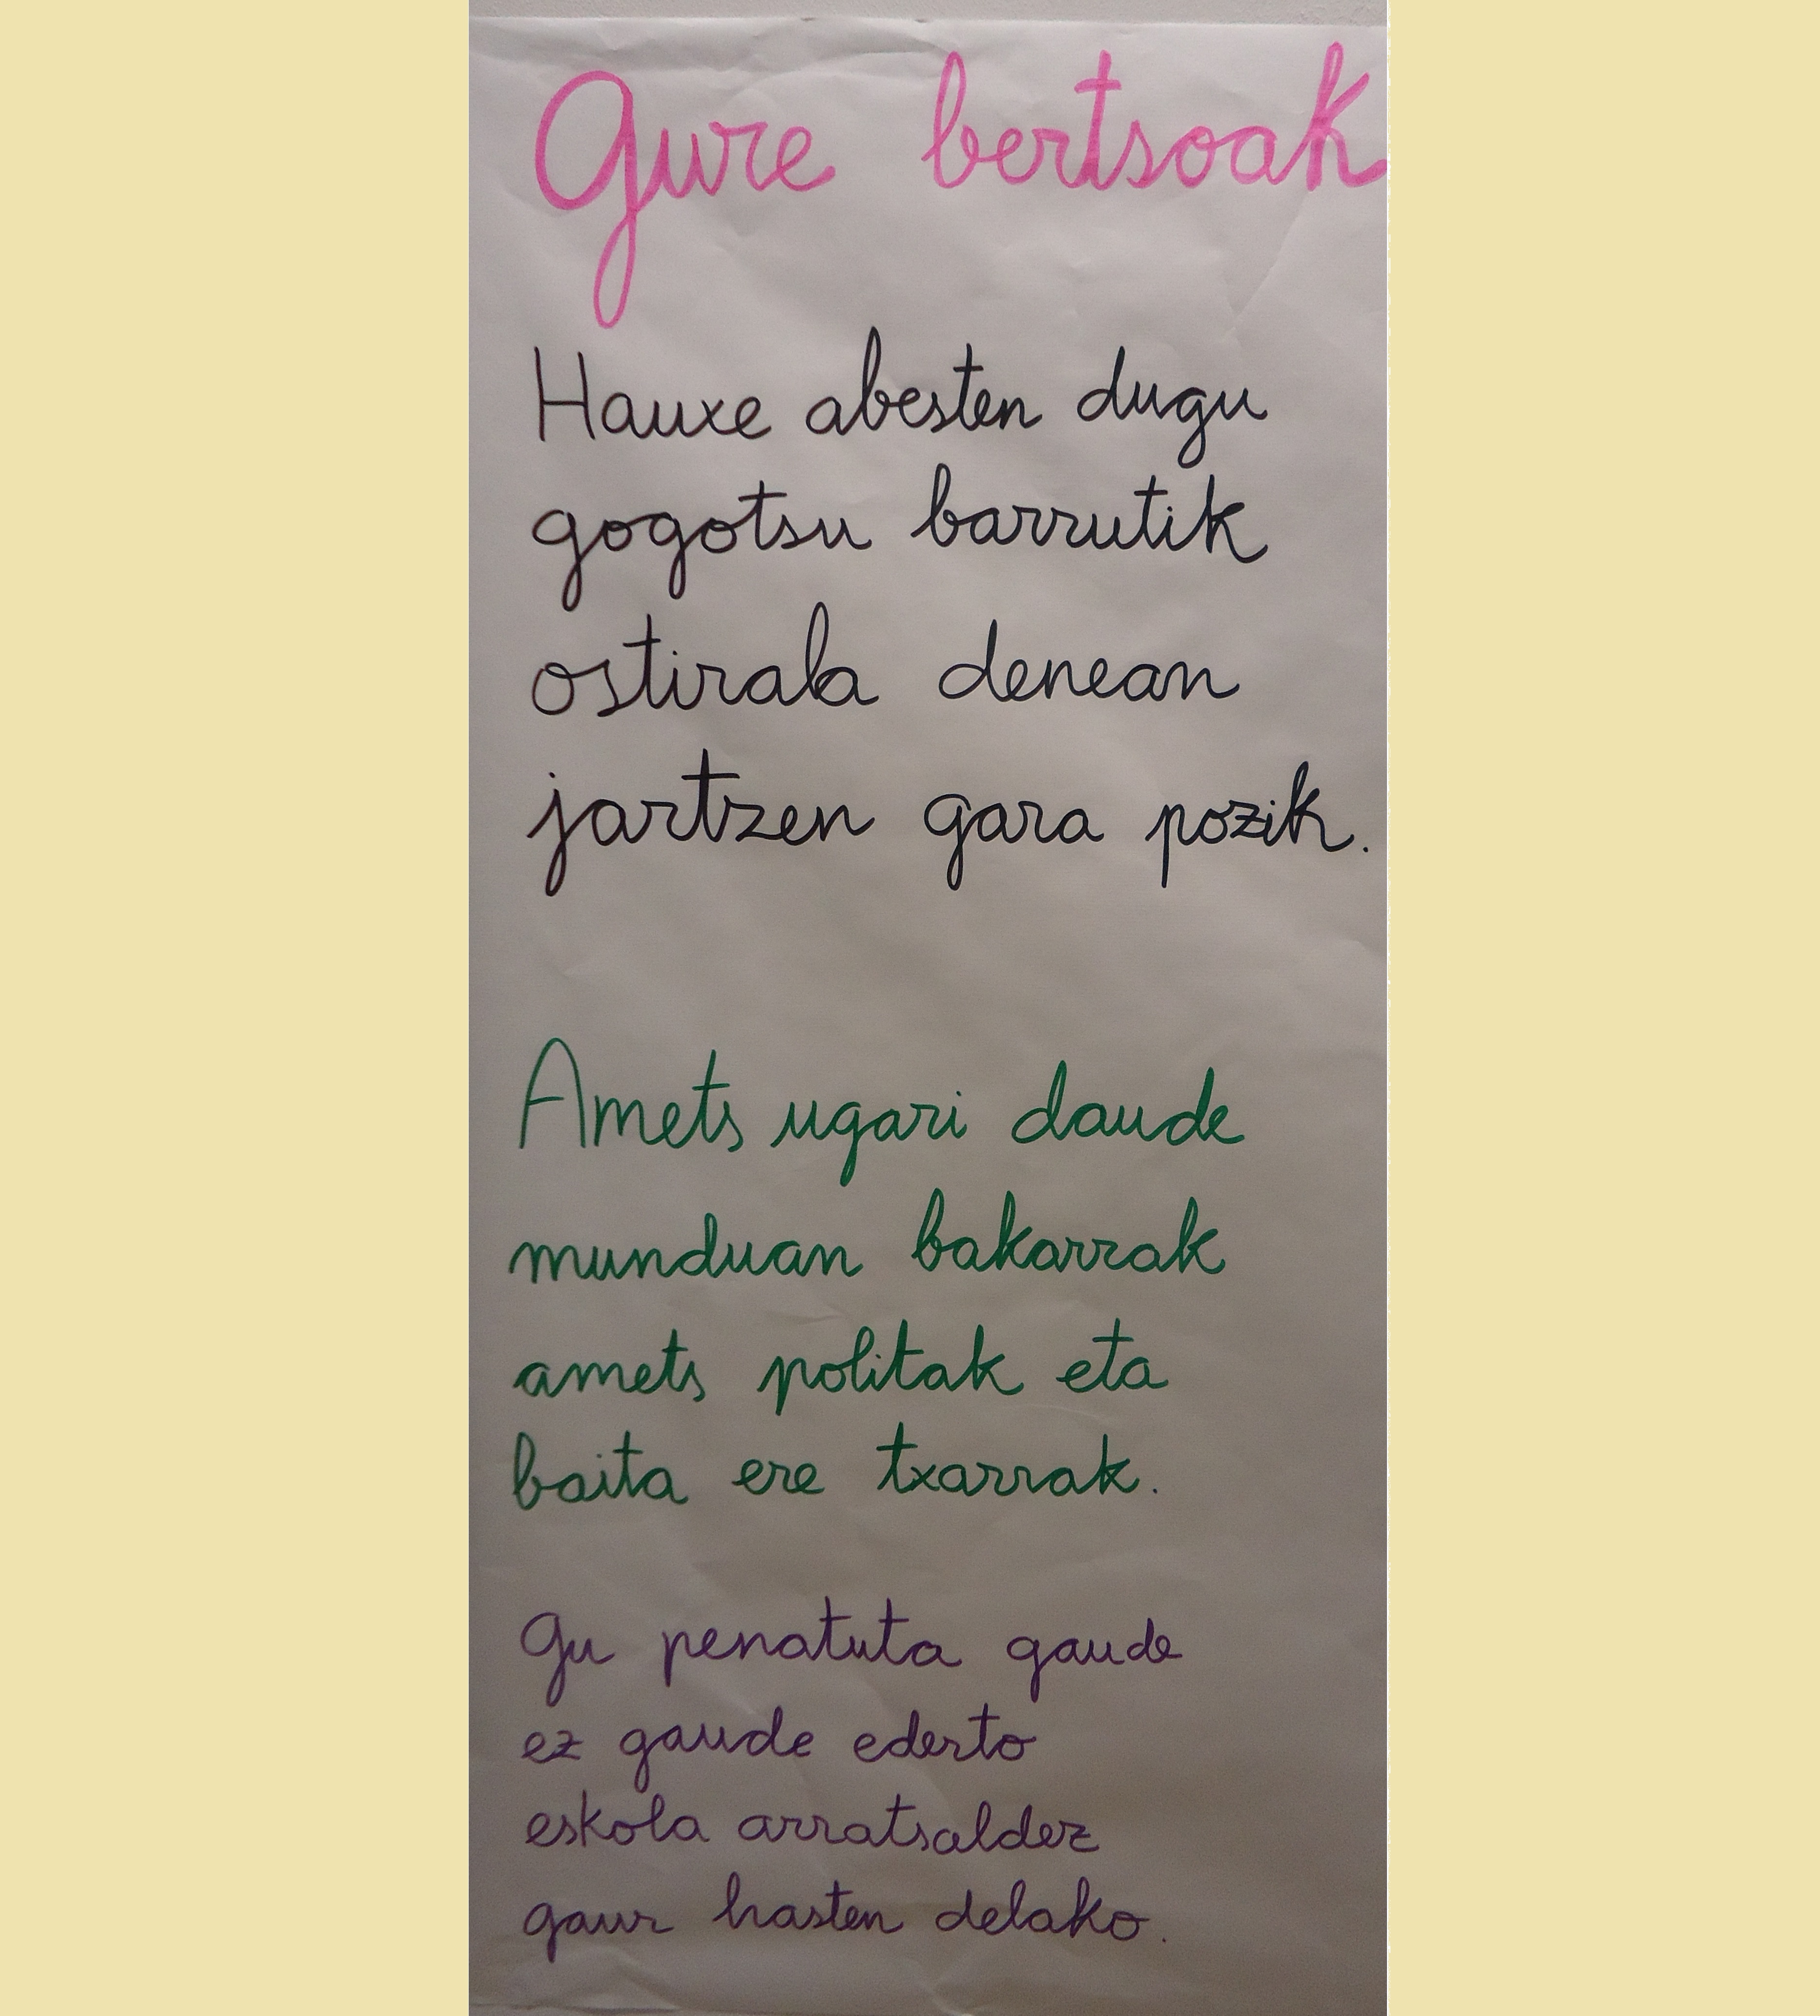 Gure bertsoak
Hauxe abesten dugu
gogotsu barrutik
ostirala denean
jartzen gara pozik.
Amets ugari daude
munduan bakarrak
amets politak eta
baita ere txarrak.
Gu penatuta gaude
ez gaude ederto
eskola arratsaldez
gaur hasten delako.